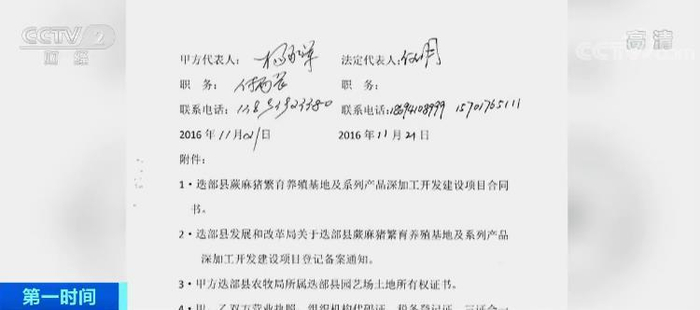 CCTV 2
财经
高清
甲方代表人: 法定代表人:
职 务: 职 务:
联系电话: 联系电话: 18694108999 15701765111
2016 年 11 月 日 2016 年 11 月 21 日
附件:
1·迭部县蕨麻猪繁育养殖基地及系列产品深加工开发建设项目合同
书。
2·迭部县发展和改革局关于迭部县蕨麻猪繁育养殖基地及系列产品
深加工开发建设项目登记备案通知。
3·甲方迭部县农牧局所属迭部县园艺场土地所有权证书。
4·甲、乙双方营业执照、组织机构代码证、税务登记证、三证合一
第一时间